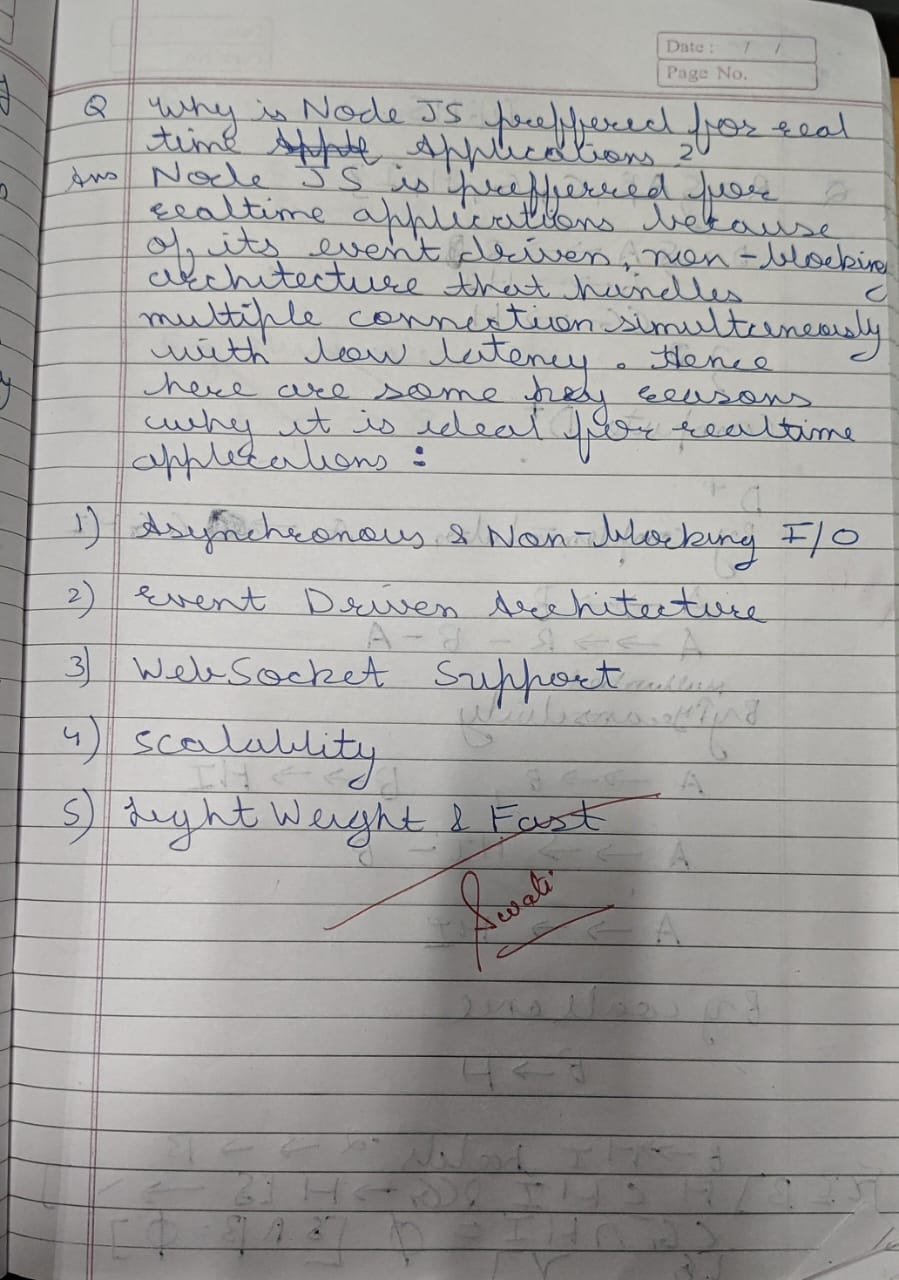 Date : / /
Page No.
Q Why is Node JS preffered for real
time Applications ?
Ans Node JS is prefferred for
realtime applications because
of its event driven, non-blocking
architecture that handles
multiple connection simultaneously
with low latency. Hence
here are some key reasons
why it is ideal for realtime
applications :
1) Asynchronous & Non-blocking I/O
2) Event Driven Architecture
3) WebSocket Support
4) Scalability
5) Light Weight & Fast
Swati